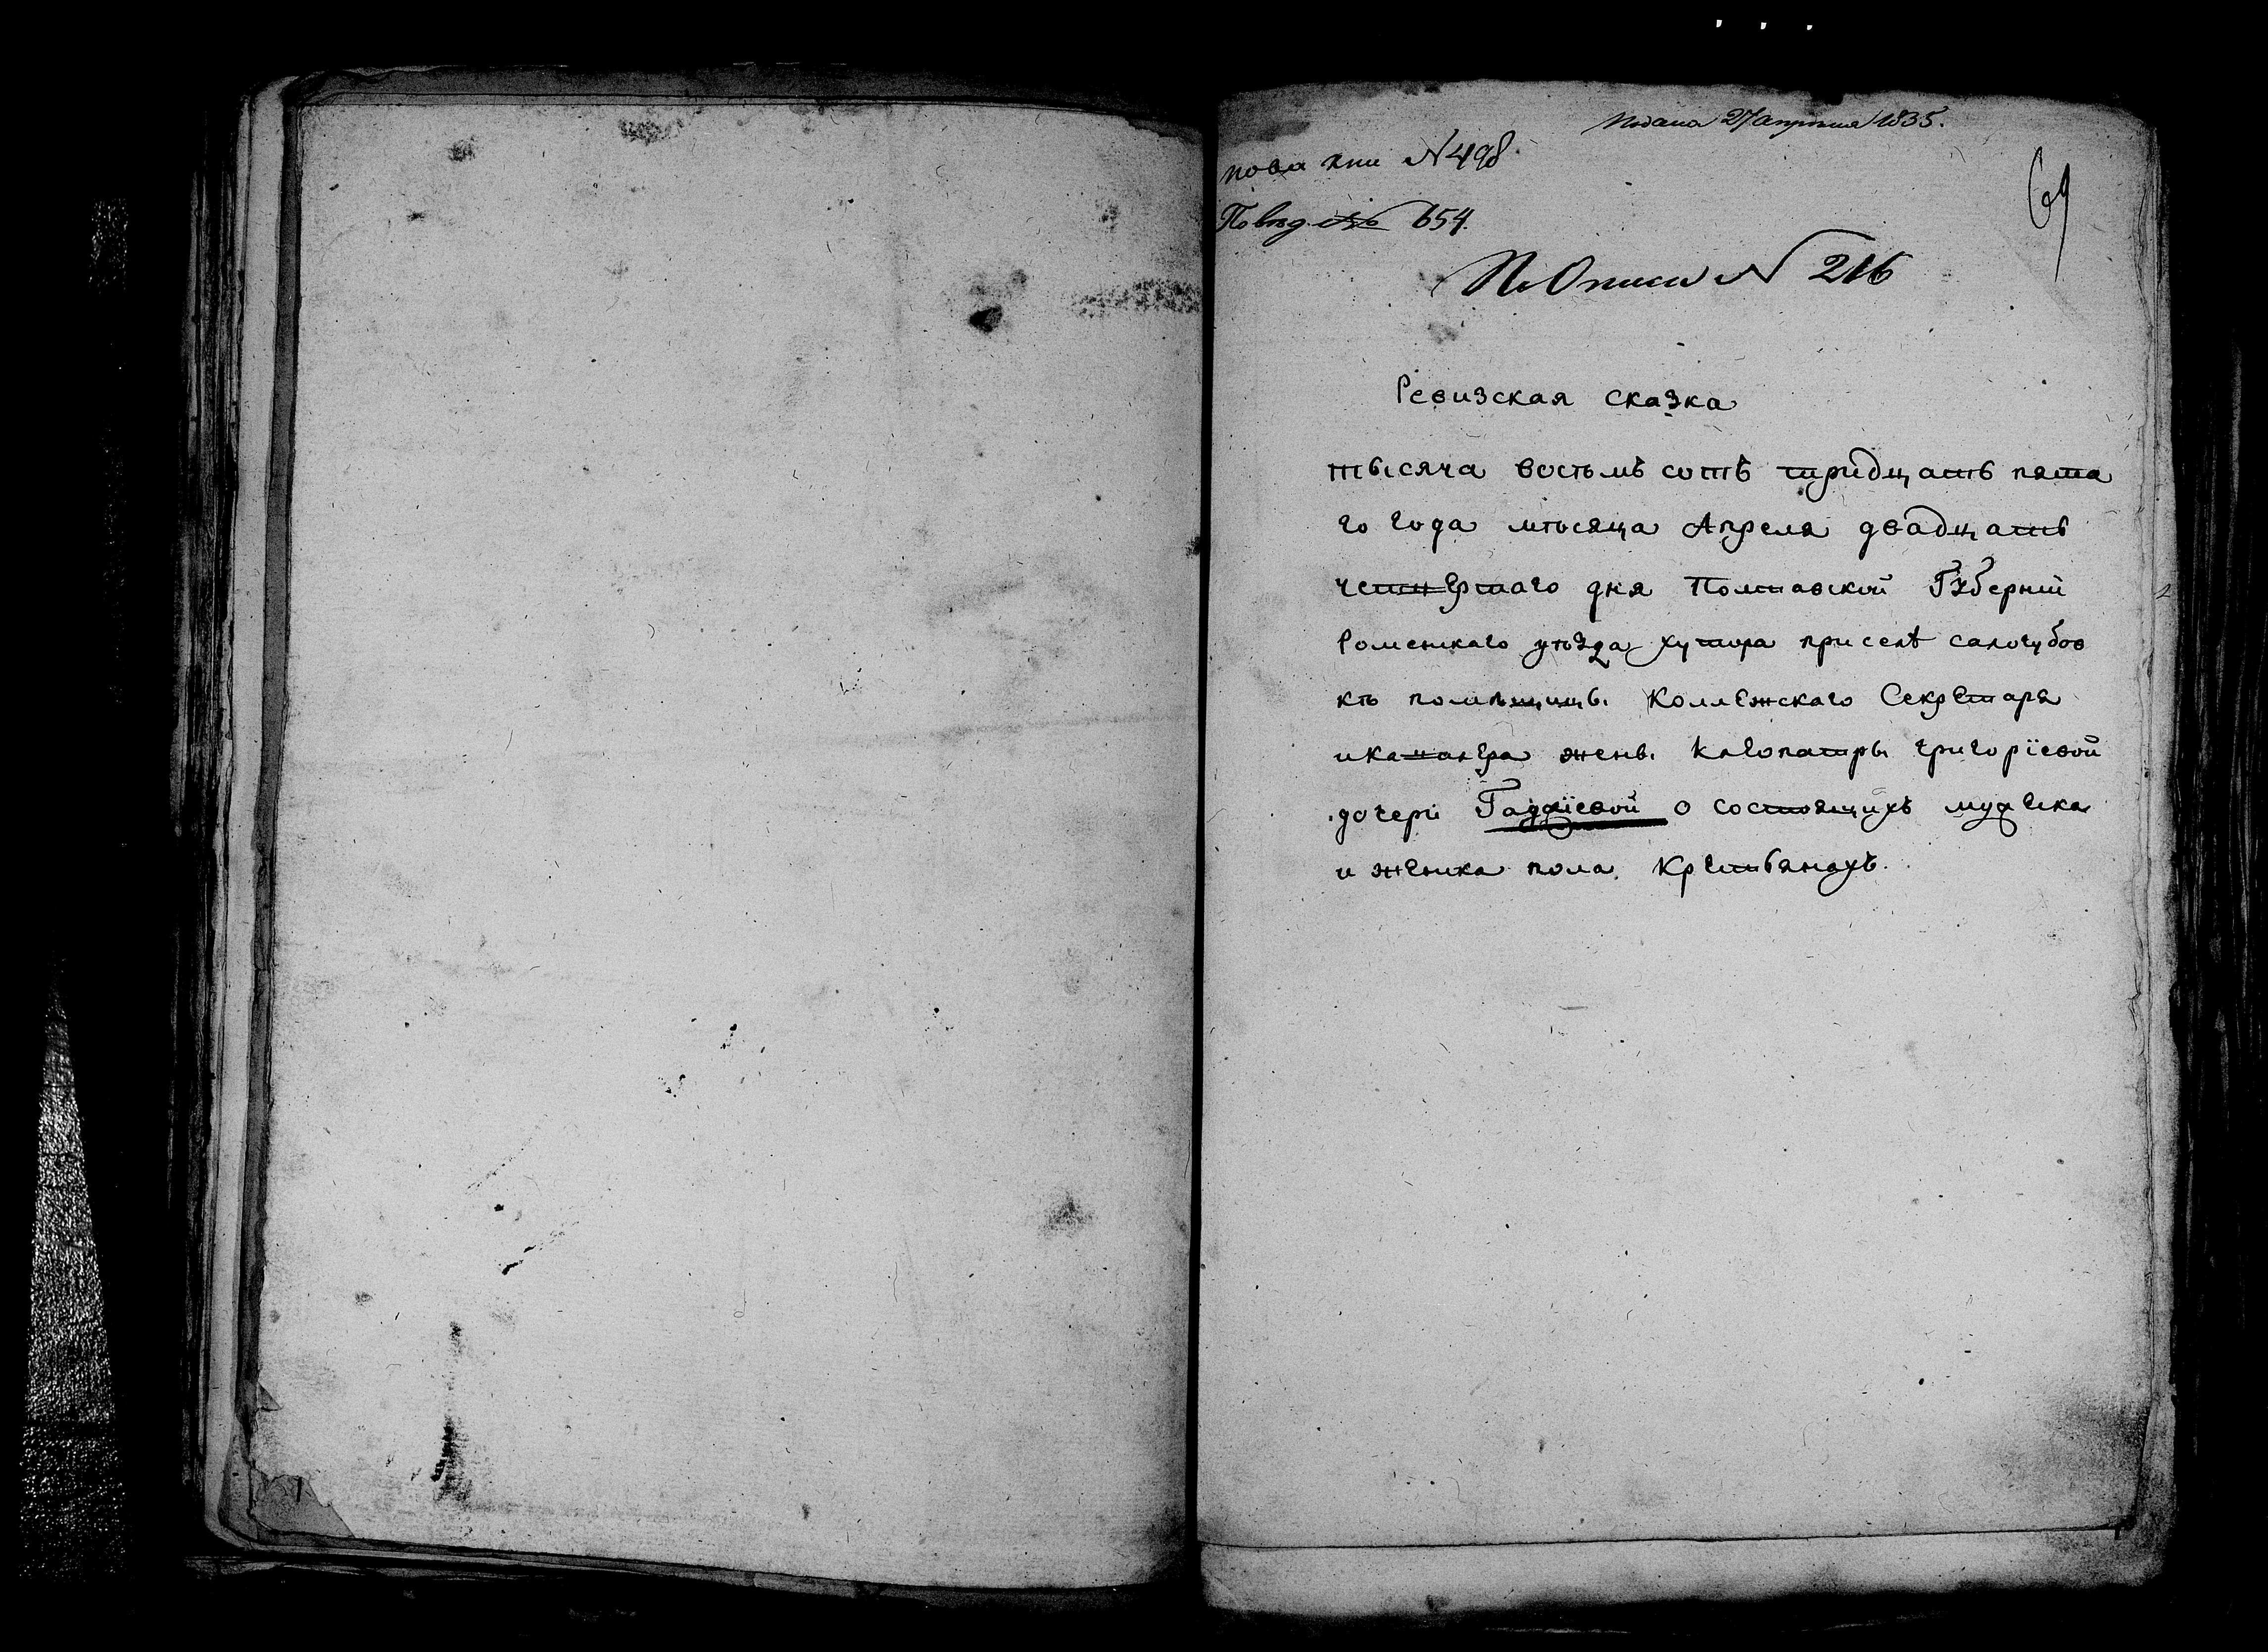 Подана 27 апреля 1835.
69
по ва кни №498.
По вед. № 654.
По Описи N 216
Ревизская сказка
тысяча восьмъ сотъ тридцать пята
го года мѣсяца Апреля двадцать
четвертаго дня Полтавской Губерніи
Роменскаго уѣзда хутора при селѣ салогубов
кѣ помѣщицы Коллежскаго Секретаря
и кавалера жены Клеопатры григоріевой
дочери о состоящихъ мужеска
и женска пола крестьянахъ.